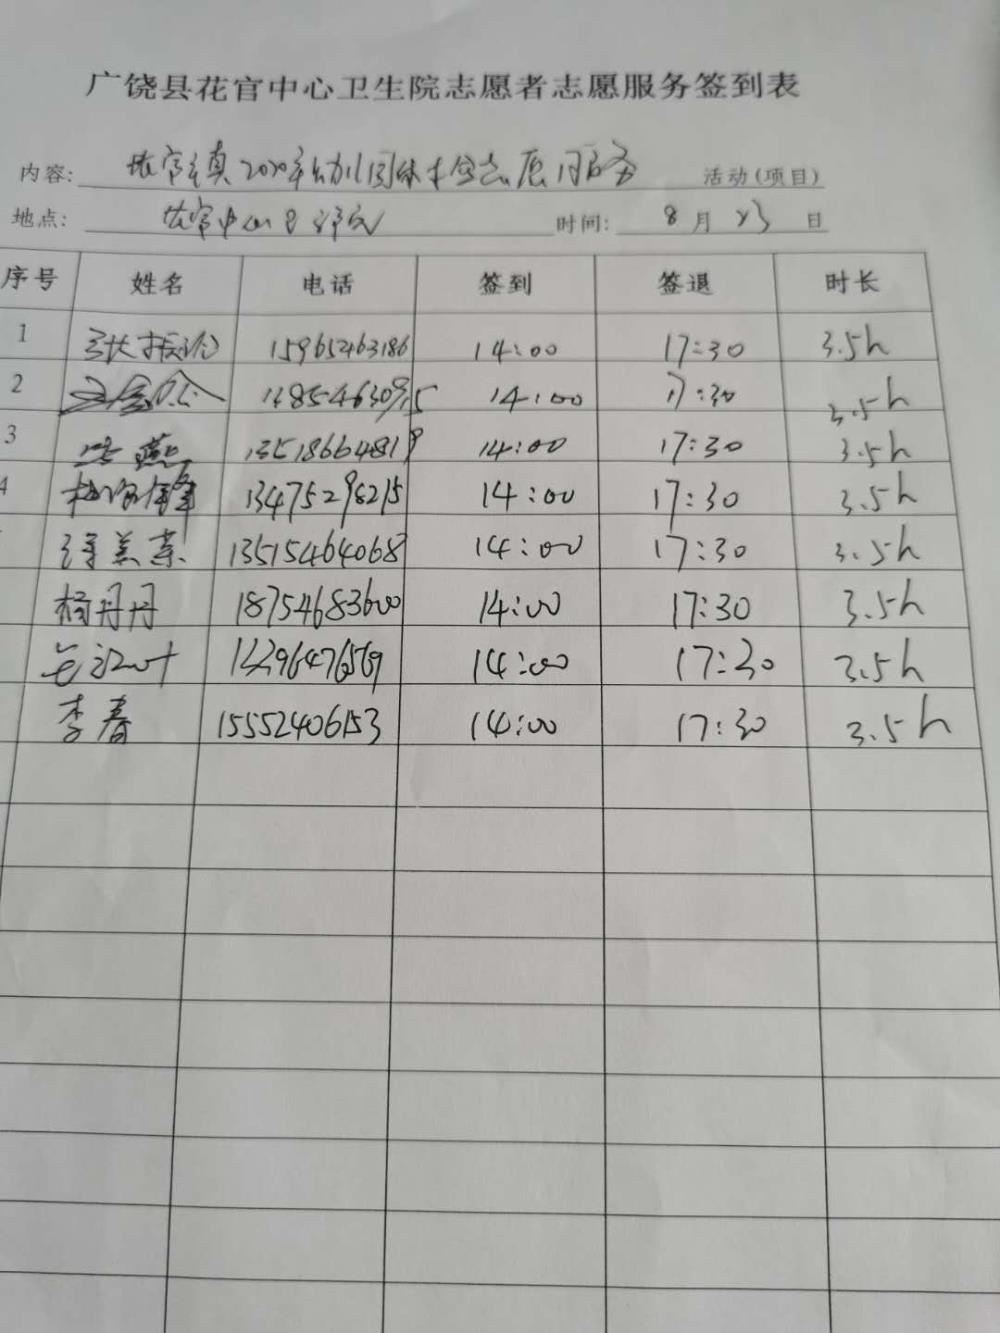 广饶县花官中心卫生院志愿者志愿服务签到表
内容: 花官镇2020年幼儿园体检志愿服务 活动(项目)
地点: 花官中心卫生院 时间: 8月23日
序号 姓名 电话 签到 签退 时长
1 15965263186 14:00 17:30 3.5h
2 14:00 17:30 3.5h
3 燕 14:00 17:30 3.5h
4 13475296215 14:00 17:30 3.5h
13515464068 14:00 17:30 3.5h
杨丹丹 18754683600 14:00 17:30 3.5h
14:00 17:30 3.5h
李春 15552406153 14:00 17:30 3.5h